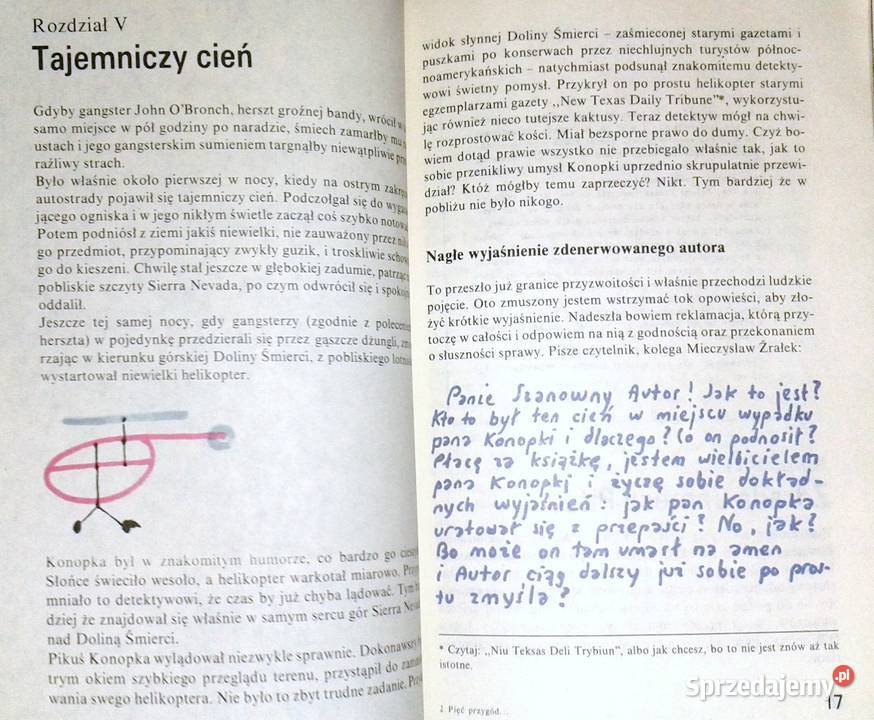 Rozdział V
Tajemniczy cień
Gdyby gangster John O'Bronch, herszt groźnej bandy, wrócił
samo miejsce w pół godziny po naradzie, śmiech zamarłby mu
ustach i jego gangsterskim sumieniem targnąłby niewątpliwie
raźliwy strach.
Było właśnie około pierwszej w nocy, kiedy na ostrym
autostrady pojawił się tajemniczy cień. Podczołgał się do
jącego ogniska i w jego nikłym świetle zaczął coś szybko
Potem podniósł z ziemi jakiś niewielki, nie zauważony przez
go przedmiot, przypominający zwykły guzik, i troskliwie
go do kieszeni. Chwilę stał jeszcze w głębokiej zadumie,
pobliskie szczyty Sierra Nevada, po czym odwrócił się i
oddalił.
Jeszcze tej samej nocy, gdy gangsterzy (zgodnie z
herszta) w pojedynkę przedzierali się przez gąszcze dżungli,
rzając w kierunku górskiej Doliny Śmierci, z pobliskiego
wystartował niewielki helikopter.
Konopka był w znakomitym humorze, co bardzo go
Słońce świeciło wesoło, a helikopter warkotał miarowo.
mniało to detektywowi, że czas by już chyba lądować.
dziej że znajdował się właśnie w samym sercu gór Sierra
nad Doliną Śmierci.
Pikuś Konopka wylądował niezwykle sprawnie. Dokonawszy
trym okiem szybkiego przeglądu terenu, przystąpił do
wania swego helikoptera. Nie było to zbyt trudne zadanie.
widok słynnej Doliny Śmierci – zaśmieconej starymi gazetami i
puszkami po konserwach przez niechlujnych turystów północ-
noamerykańskich – natychmiast podsunął znakomitemu detekty-
wowi świetny pomysł. Przykrył on po prostu helikopter starymi
egzemplarzami gazety „New Texas Daily Tribune"*, wykorzystu-
jąc również nieco tutejsze kaktusy. Teraz detektyw mógł na chwi-
lę rozprostować kości. Miał bezsporne prawo do dumy. Czyż bo-
wiem dotąd prawie wszystko nie przebiegało właśnie tak, jak to
sobie przenikliwy umysł Konopki uprzednio skrupulatnie przewi-
dział? Któż mógłby temu zaprzeczyć? Nikt. Tym bardziej że w
pobliżu nie było nikogo.
Nagłe wyjaśnienie zdenerwowanego autora
To przeszło już granice przyzwoitości i właśnie przechodzi ludzkie
pojęcie. Oto zmuszony jestem wstrzymać tok opowieści, aby zło-
żyć krótkie wyjaśnienie. Nadeszła bowiem reklamacja, którą przy-
toczę w całości i odpowiem na nią z godnością oraz przekonaniem
o słuszności sprawy. Pisze czytelnik, kolega Mieczysław Żrałek:
Panie Szanowny Autor! Jak to jest?
Kto to był ten cień w miejscu wypadku
pana Konopki i dlaczego? Co on podnosił?
Płacę za książkę, jestem wielbicielem
pana Konopki i życzę sobie dokład-
nych wyjaśnień: jak pan Konopka
uratował się z przepaści? No, jak?
Bo może on tam umarł na amen
i Autor ciąg dalszy już sobie po pros-
tu zmyśla?
* Czytaj: „Niu Teksas Deli Trybiun", albo jak chcesz, bo to nie jest znów aż tak
istotne.
2 Pięć przygód...
17
Sprzedajemy.pl